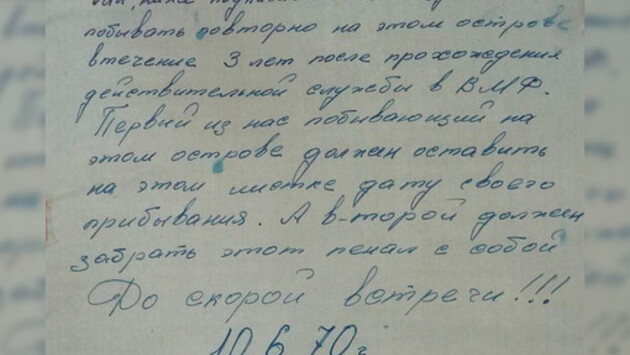 побывать повторно на этом острове
втечение 3 лет после прохождения
действительной службы в ВМФ.
Первий из нас побывающий на
этом острове должен оставить
на этом листке дату своего
прибывания. А в-торой должен
забрать этот пенал с собой
До скорой встречи!!!
10.6.70 г